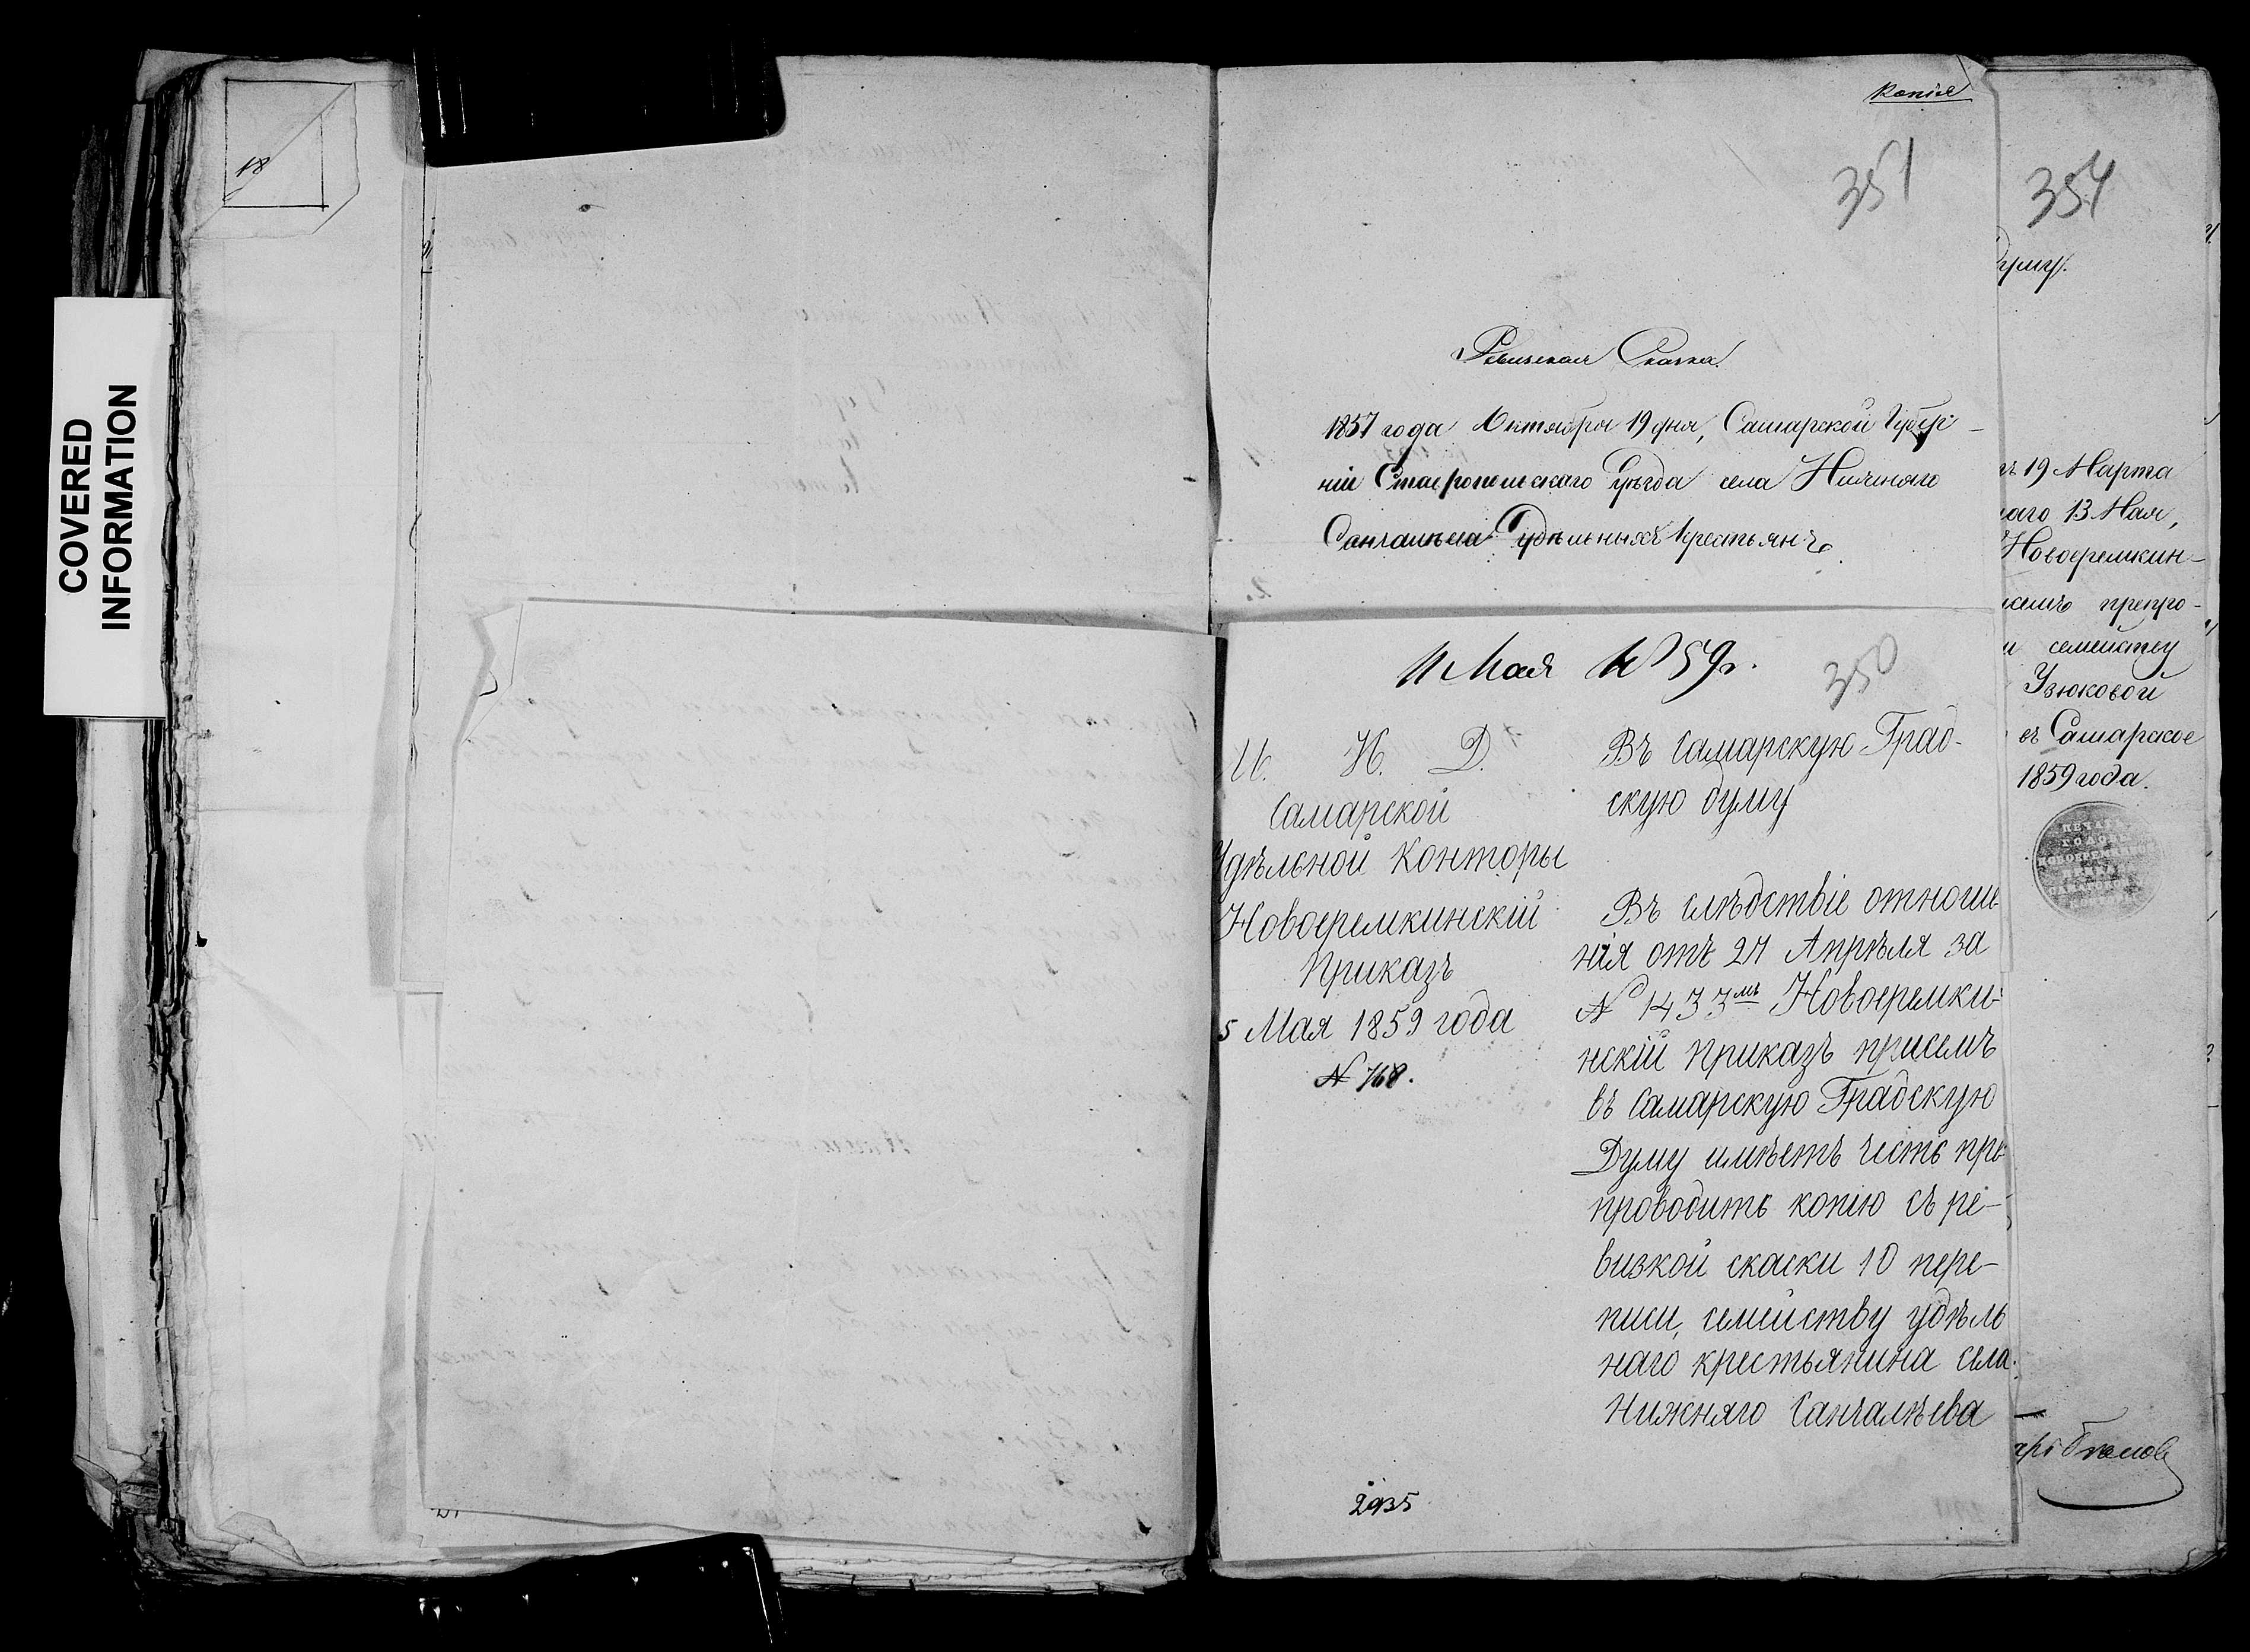 COVERED
INFORMATION
18
Копія
351
Ревизская Сказка.
1857 года Октября 19 дня, Самарской Губер-
ніи Ставропольскаго Уѣзда села Нижняго
Санчалѣева Удѣльныхъ Крестьянъ.
11 Мая 1859 г.
350
М. И. Д.
Самарской
Удѣльной Конторы
Новоеремкинскій
Приказъ
5 Мая 1859 года
№ 768.
2935
Въ Самарскую Град-
скую думу
Въ слѣдствіе отноше
нія отъ 27 Апрѣля за
№ 1433мъ Новоеремки-
нскій приказъ присемъ
въ Самарскую Градскую
Думу имѣетъ честь пре
проводить копію съ ре-
визкой скаски 10 пере-
писи, семейству удѣль
наго крестьянина села
Нижняго Санчалѣева
354
Думу.
19 Марта
13 Мая,
Новоеремкин-
препро-
семейству
Узюковой
Самарское
1859 года.